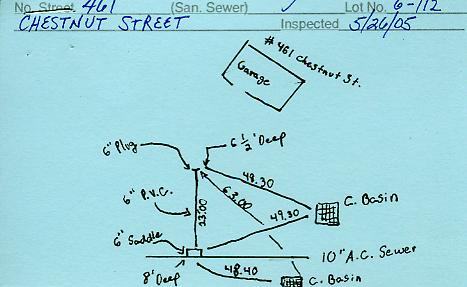 No. Street 461 (San. Sewer) Lot No. 6-112
CHESTNUT STREET Inspected 5/26/05
#461 Chestnut St.
Garage
6" Plug
6 1/2' Deep
48.30
6" P.V.C.
63.00
23.00
C. Basin
49.30
6" Saddle
10" A.C. Sewer
8' Deep
48.40
C. Basin